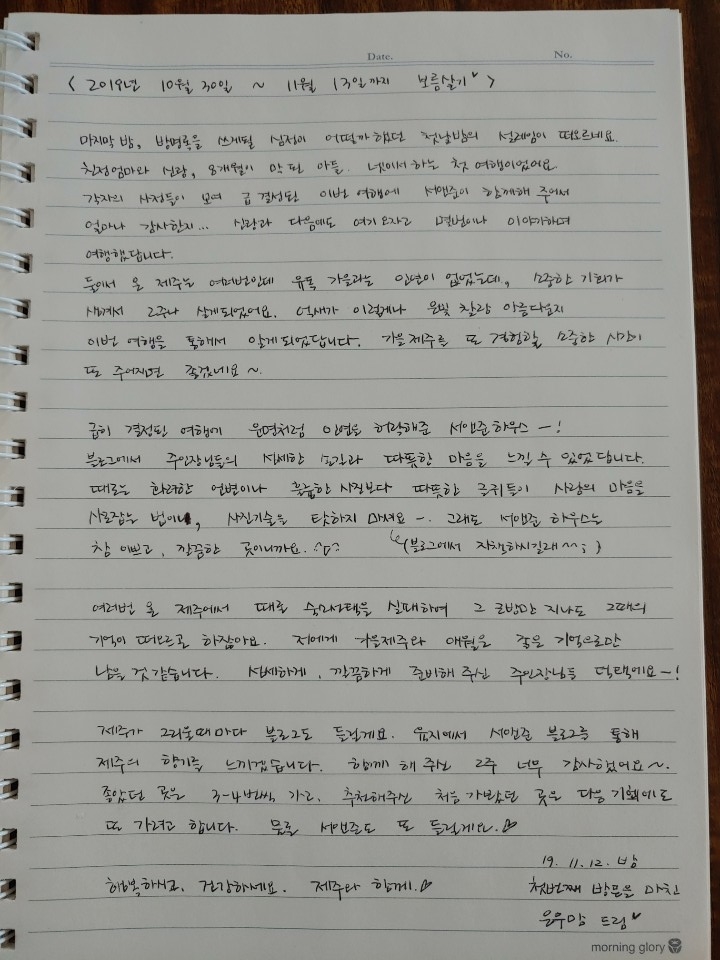 Date.
No.
< 2019년 10월 30일 ~ 11월 13일까지 보름살기 >
마지막 밤, 방명록을 쓰게될 심정이 어떨까 했던 첫날밤의 설레임이 떠오르네요.
친정엄마와 신랑, 8개월이 막 된 아들. 넷이서 하는 첫 여행이었어요.
각자의 사정들이 모여 급 결성된 이번 여행에 서앤준이 함께해 주어서
얼마나 감사한지... 신랑과 다음에도 여기 오자고 몇번이나 이야기하며
여행했답니다.
둘이서 온 제주는 여러번인데 유독 가을과는 인연이 없었는데, 소중한 기회가
생겨서 2주나 살게되었어요. 억새가 이렇게나 은빛 찰랑 아름다운지
이번 여행을 통해서 알게되었답니다. 가을 제주를 또 경험할 소중한 시간이
또 주어지면 좋겠네요~.
급히 결정된 여행에 운명처럼 인연을 허락해준 서앤준하우스-!
블로그에서 주인장님들의 세세한 손길과 따뜻한 마음을 느낄 수 있었답니다.
때로는 화려한 언변이나 훌륭한 사진보다 따뜻한 글귀들이 사람의 마음을
사로잡는 법이니, 사진기술을 탓하지 마셔요-. 그래도 서앤준 하우스는
참 이쁘고, 깔끔한 곳이니까요. (블로그에서 자책하시길래^^;)
여러번 온 제주에서 때론 숙소선택을 실패하여 그 근방만 지나도 그때의
기억이 떠오르곤 하잖아요. 저에게 가을제주와 애월은 좋은 기억으로만
남을 것 같습니다. 세세하게, 깔끔하게 준비해 주신 주인장님들 덕택에요-!
제주가 그리울때마다 블로그도 들릴게요. 육지에서 서앤준 블로그를 통해
제주의 향기를 느끼겠습니다. 함께 해 주신 2주 너무 감사했어요~.
좋았던 곳은 3-4번씩 가고, 추천해주신 처음 가봤던 곳은 다음 기회에도
또 가려고 합니다. 물론 서앤준도 또 들릴게요.♡
19. 11. 12. 밤
행복하시고, 건강하세요. 제주와 함께.♡ 첫번째 방문을 마친
은우맘 드림
morning glory